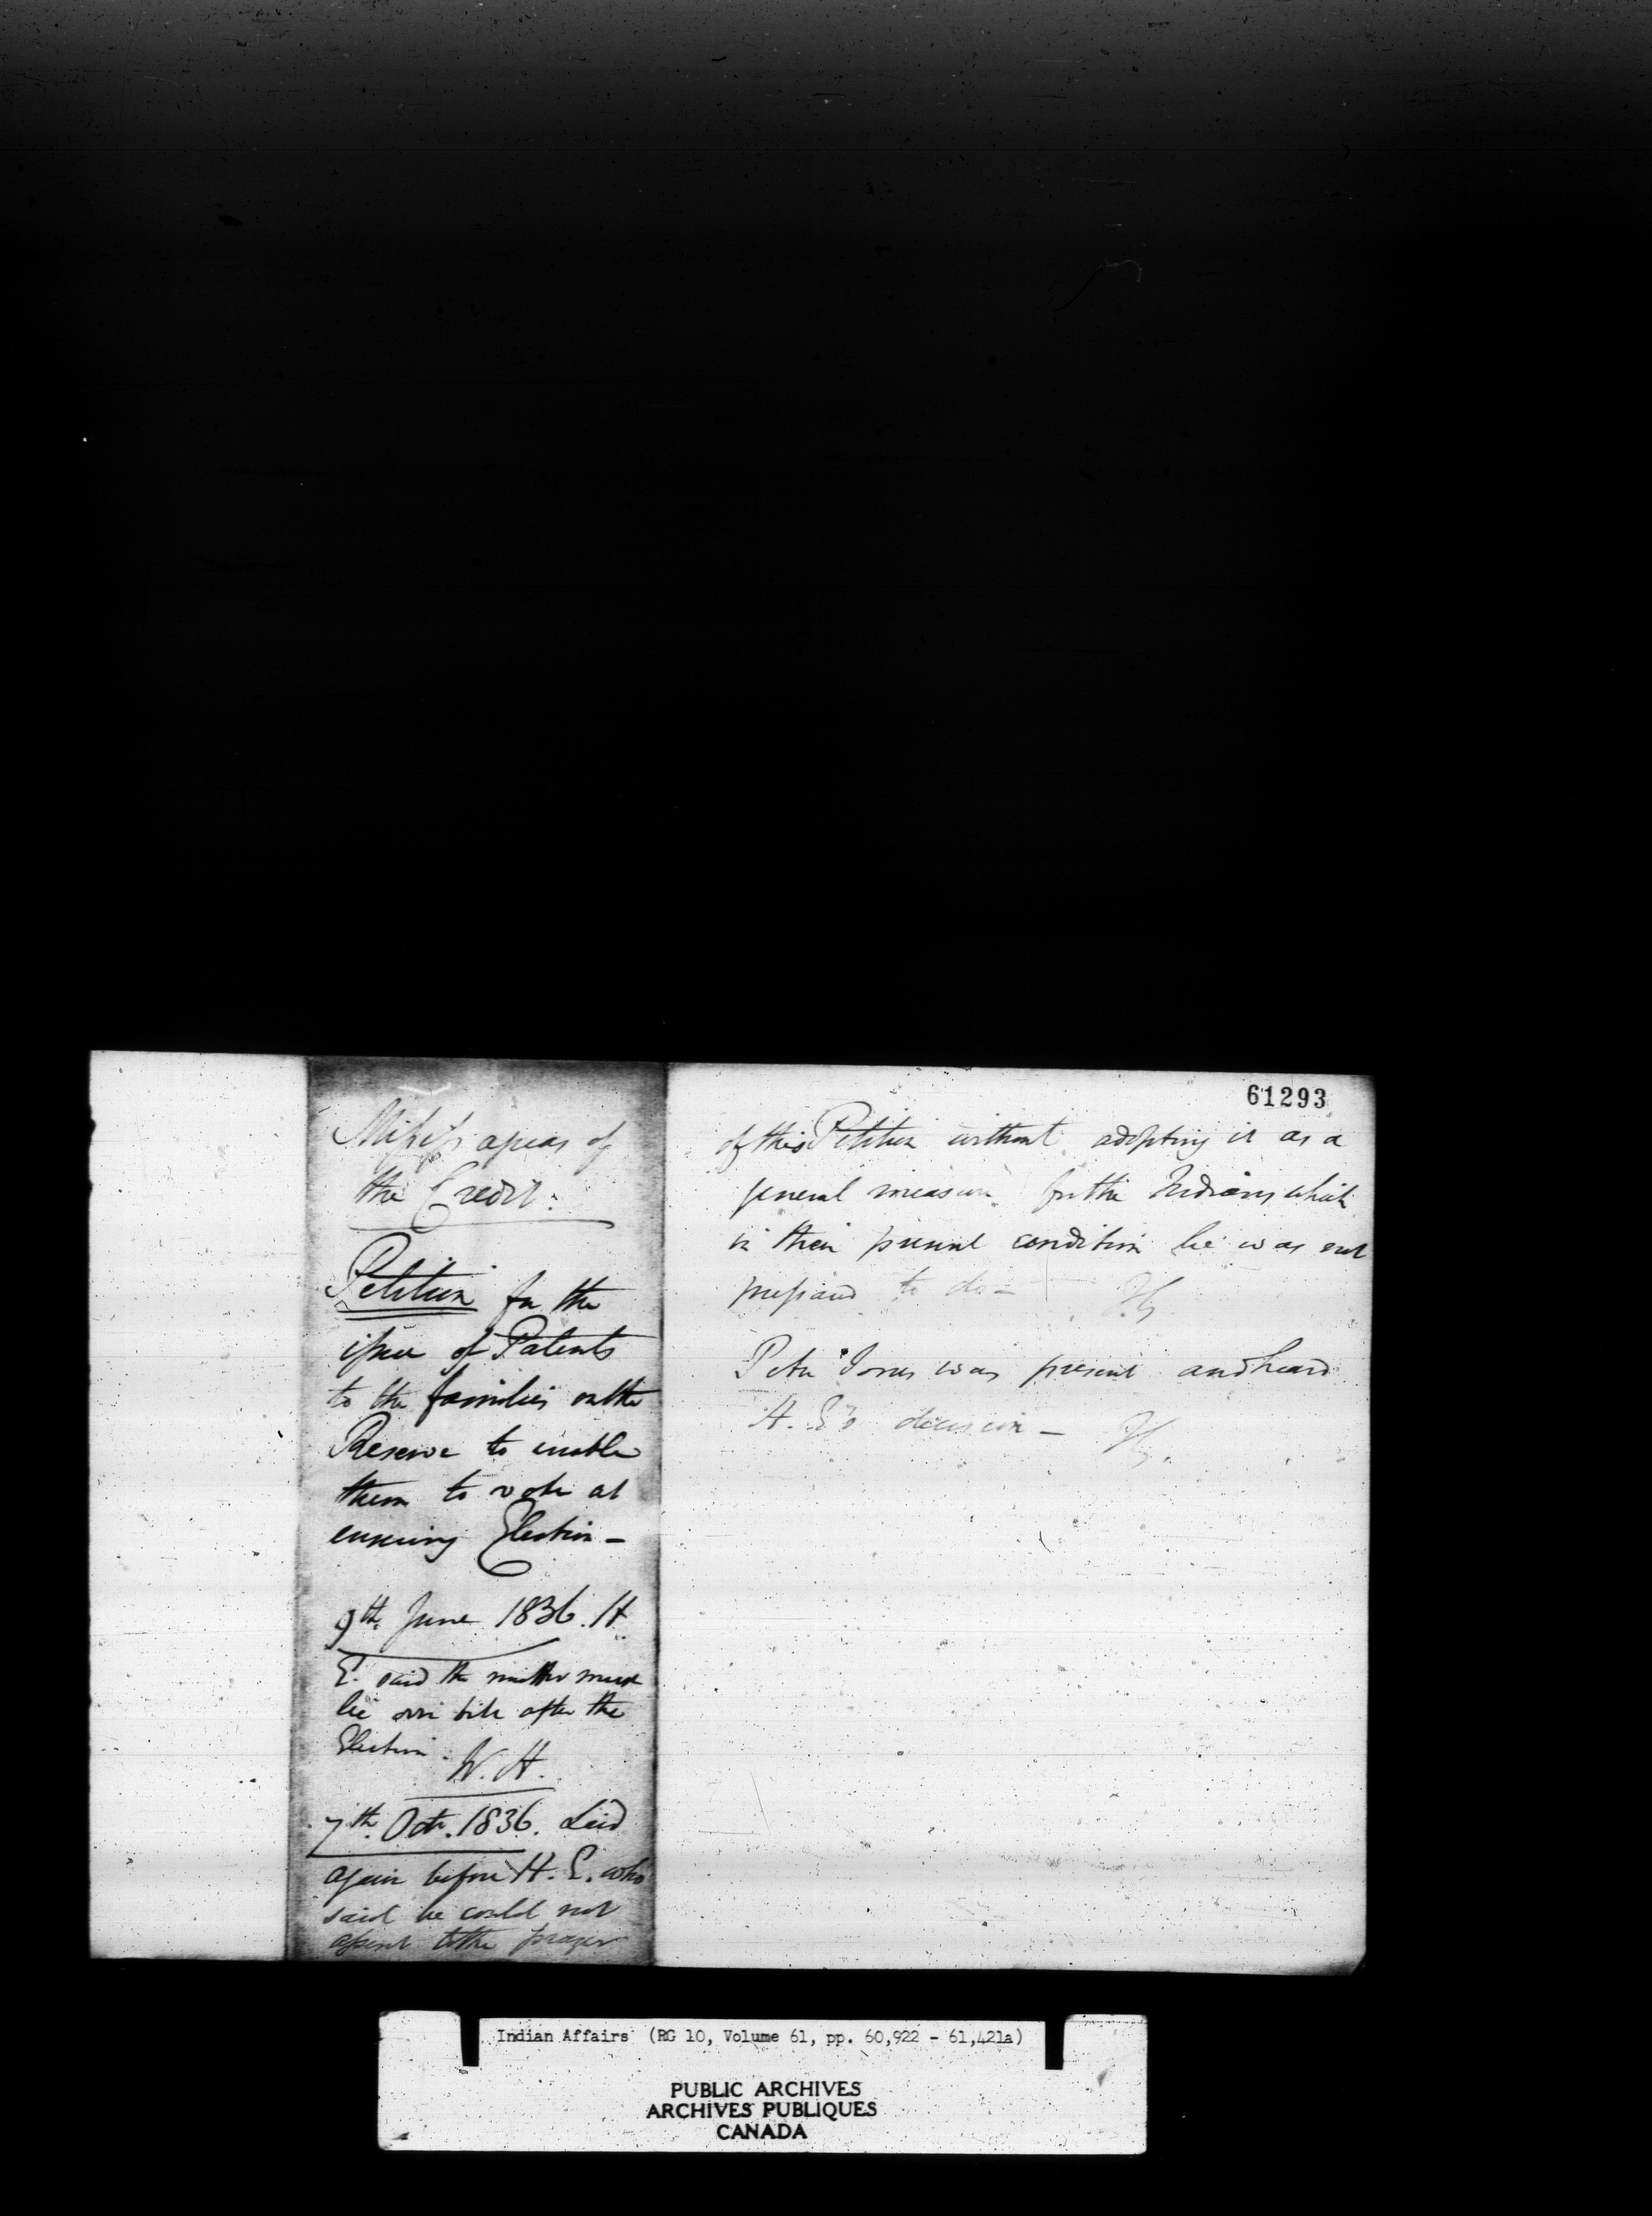 Mississagas of
the Credit.
Petition for the
issue of Patents
to the families on the
Reserve to enable
them to vote at
ensuing Election –
9th June 1836. H.
E. said the matter must
lie over till after the
Election.
W. H.
7th Octr. 1836. Laid
again before H. E. who
said he could not
assent to the prayer
61293
of this Petition without adopting it as a
general measure for the Indians which
in their present condition he was not
prepared to do –
Peter Jones was present and heard
H. E's decision –
Indian Affairs (RG 10, Volume 61, pp. 60,922 - 61,421a)
PUBLIC ARCHIVES
ARCHIVES PUBLIQUES
CANADA